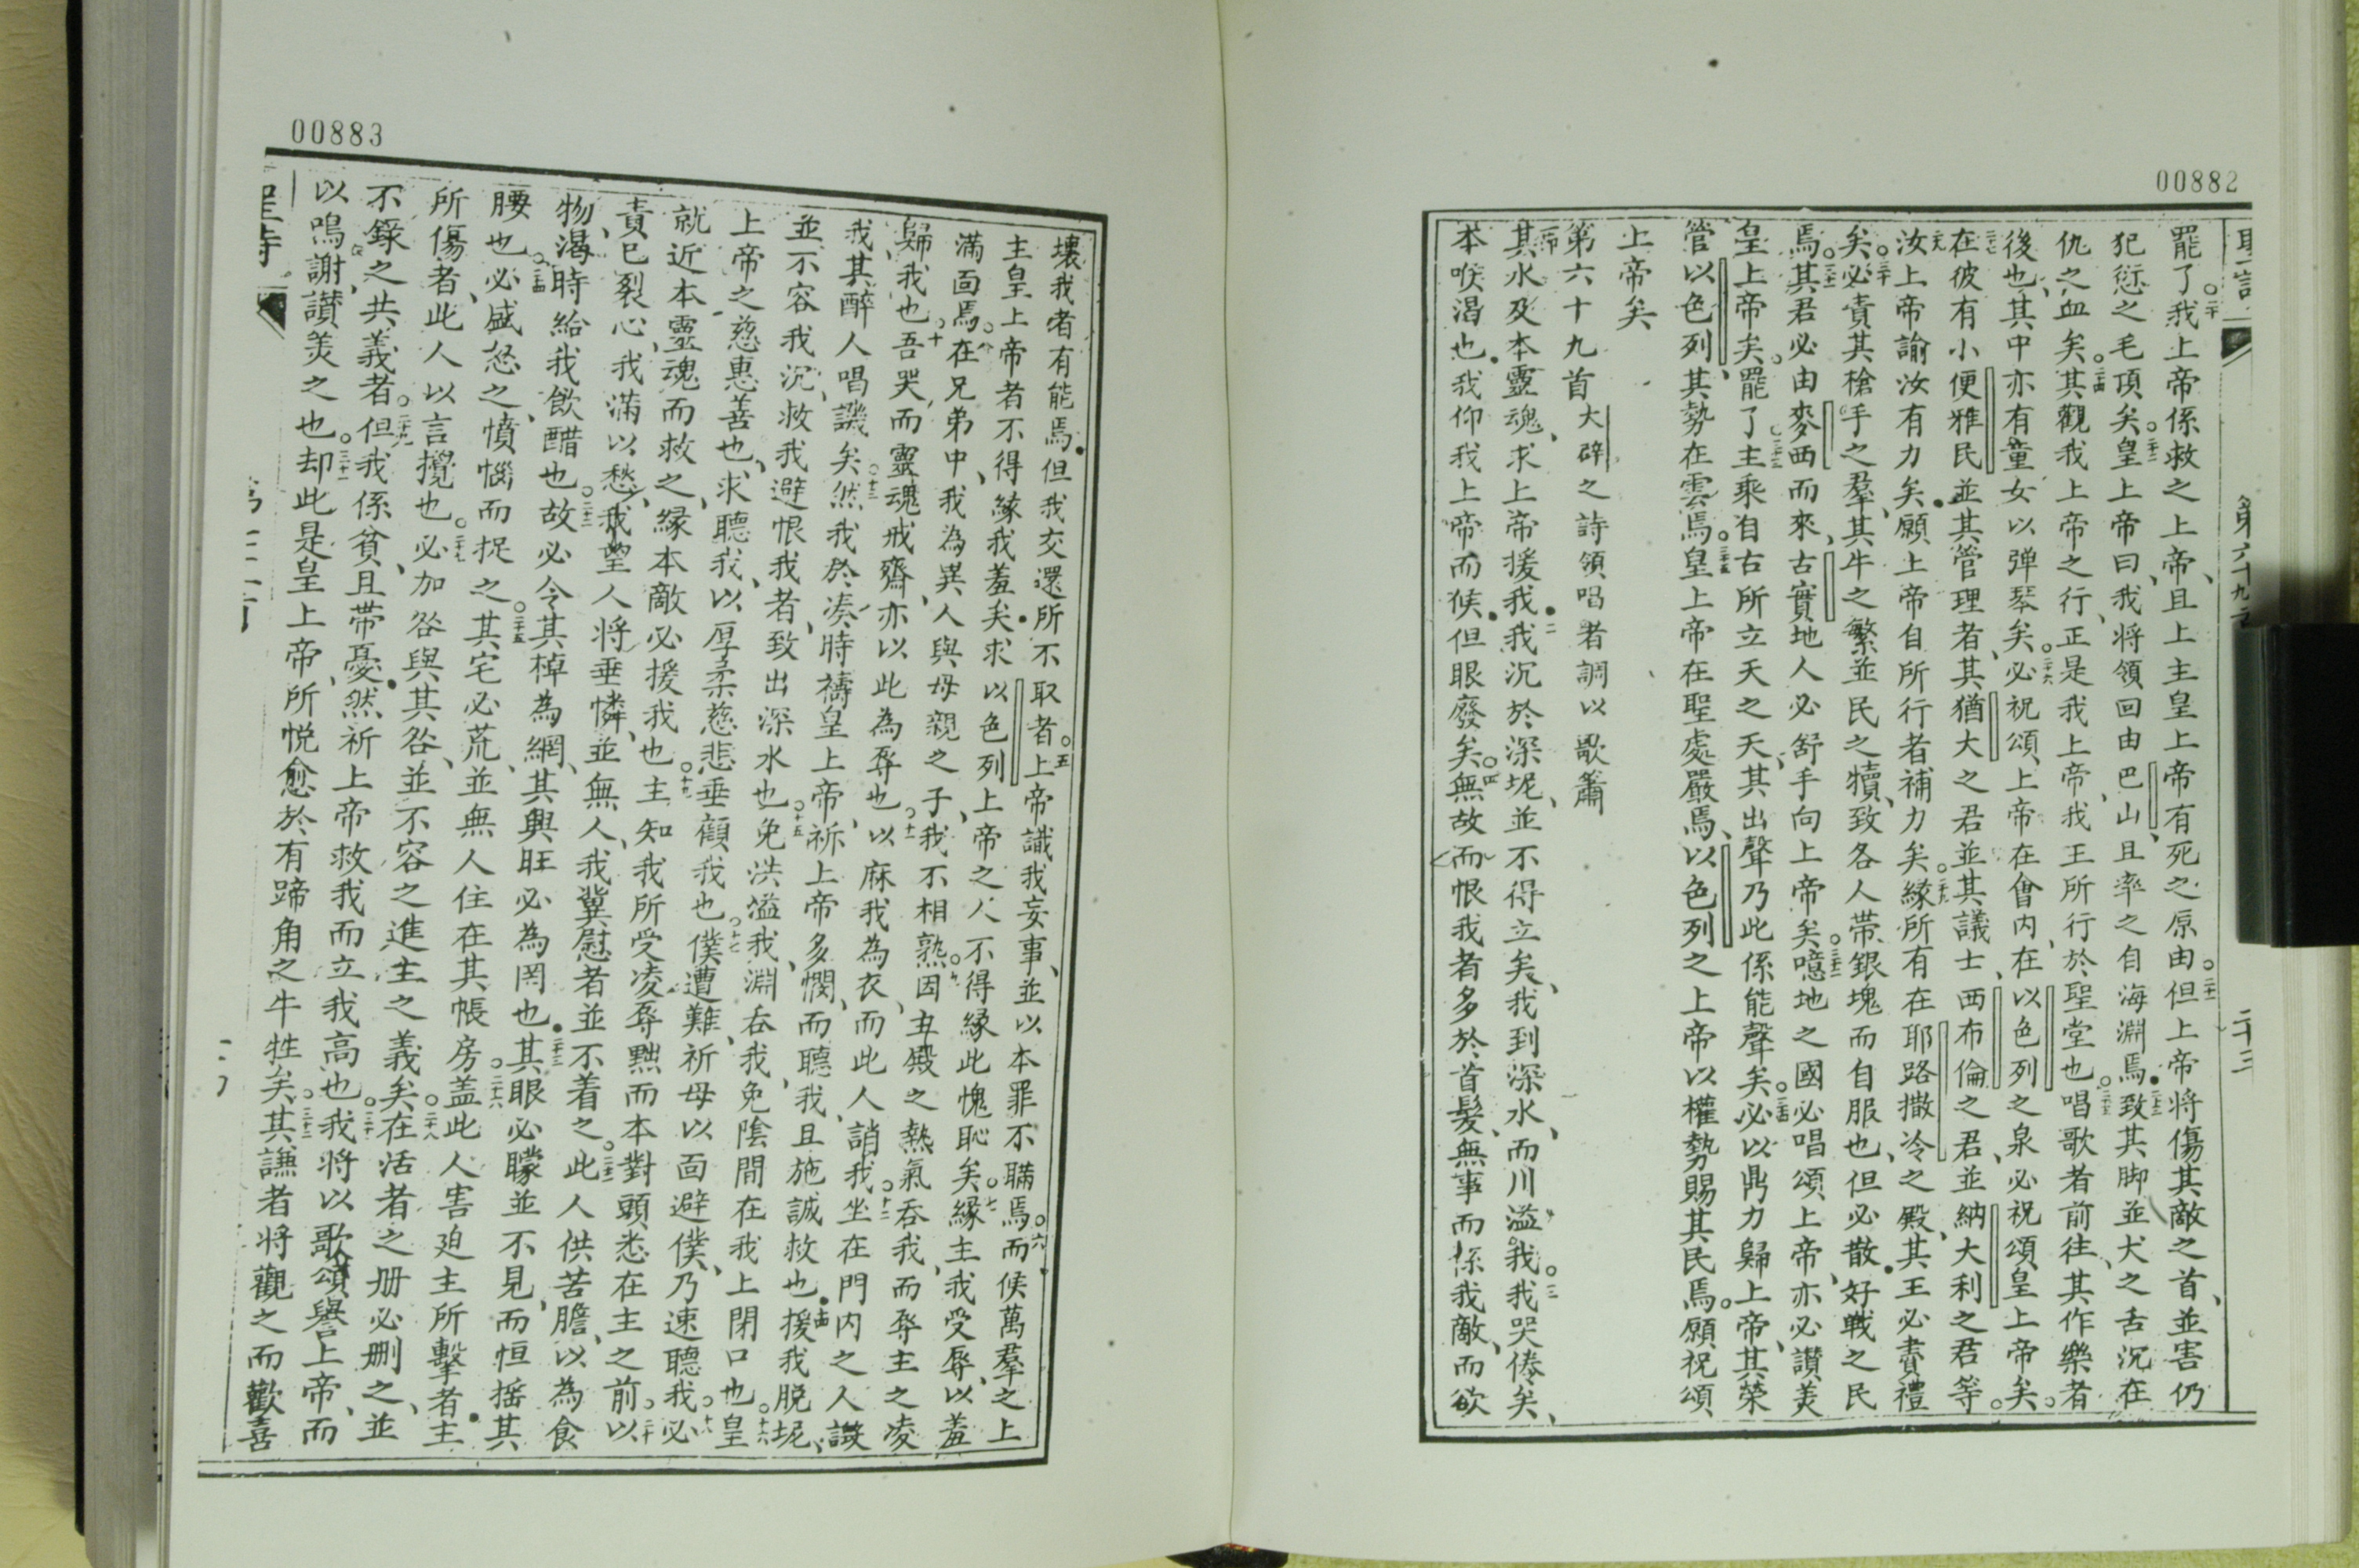 00882
罷了。二十我上帝係救之上帝、且上主皇上帝有死之原由。二十一但上帝將傷其敵之首、並害仍
犯愆之毛頂矣。二十二皇上帝曰、我將領回由巴山、且率之自海淵焉。二十三致其脚並犬之舌沉在
仇之血矣。二十四其觀我上帝之行、正是我上帝、我王所行於聖堂也。二十五唱歌者前往、其作樂者
後也、其中亦有童女以弹琴矣。二十六必祝頌、上帝在會內、在以色列之泉必祝頌皇上帝矣。
二十七在彼有小便雅民並其管理者、其猶大之君並其議士、西布倫之君、並納大利之君等。
汝上帝諭汝有力矣。願上帝自所行者補力矣。二十九緣所有在耶路撒冷之殿、其王必責禮
矣。三十必責其槍手之羣、其牛之繁並民之犢、致各人帶銀塊而自服也、但必散好戰之民
焉。三十一其君必由麥西而來、古實地人必舒手向上帝矣。三十二噫地之國必唱頌上帝、亦必讃美
皇上帝矣。罷了。三十三主乘自古所立天之天、其出聲乃此係能聲矣。三十四必以鼎力歸上帝、其榮
管以色列、其勢在雲焉。三十五皇上帝在聖處嚴焉、以色列之上帝以權勢賜其民焉。願祝頌
上帝矣
第六十九首大辟之詩領唱者調以歌簫
其水及本靈魂、求上帝援我。二我沉於深坭、並不得立矣、我到深水、而川溢我。三我哭倦矣、
本喉渴也。我仰我上帝而候。但眼廢矣。四無故而恨我者多於首髮、無事而係我敵、而欲
00883
壞我者有能焉。但我交還所不取者。五上帝識我妄事、並以本罪不瞞焉。六而候萬羣之上
主皇上帝者不得緣我羞矣。求以色列上帝之人不得緣此愧恥矣。七緣主我受辱、以羞
滿面焉。八在兄弟中、我為異人、與母親之子、我不相熟。九因主殿之熱氣吞我、而辱主之凌
歸我也。十吾哭而靈魂戒齋、亦以此為辱也。十一以麻我為衣、而此人誚我。十二坐在門內之人譏
我、其醉人唱譏矣。十三然我於湊時禱皇上帝、祈上帝多憫、而聽我、且施誠救也。十四援我脫坭、
並不容我沉、救我避恨我者、致出深水也。十五免洪溢我、淵吞我、免陰間在我上閉口也。十六皇
上帝之慈惠善也、求聽我、以厚柔慈悲垂顧我也。十七僕遭難、祈毋以面避僕、乃速聽我。十八必
就近本靈魂而救之、緣本敵必援我也。十九主知我所受凌辱黜而本對頭悉在主之前。二十以
責已裂心、我滿以愁、我望人將垂憐、並無人、我冀慰者並不着之。二十一此人供苦膽、以為食
物、渴時給我飲醋也。二十二故必令其棹為網、其興旺必為罔也。二十三其眼必矇並不見、而恒搖其
腰也。二十四必盛怒之、憤惱而捉之。二十五其宅必荒、並無人住在其帳房。二十六盖此人害廹主所擊者。主
所傷者、此人以言攪也。二十七必加咎與其咎、並不容之進主之義矣。二十八在活者之册必删之、並
不錄之共義者。二十九但我係貧、且帶憂。然祈上帝救我而立我高也。三十我將以歌頌譽上帝、而
以鳴謝讃美之也。三十一却此是皇上帝、所悅愈於有蹄角之牛牲矣。三十二其謙者將觀之而歡喜